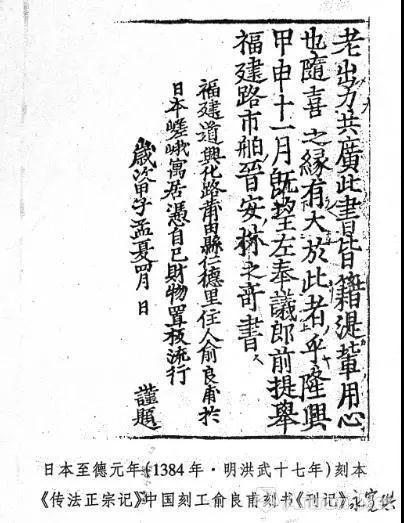 老出力共廣此書皆籍湜輩用心
也隨喜之緣有大於此者乎隆興
甲申十一月旣望左奉議郎前提舉
福建路市舶晉安林之奇書
福建道興化路莆田縣仁德里住人俞良甫於
日本嵯峨寓居憑自己財物置板流行
歲次甲子孟夏四月 日 謹題
日本至德元年(1384年·明洪武十七年)刻本
《传法正宗记》中国刻工俞良甫刻书《刊记》